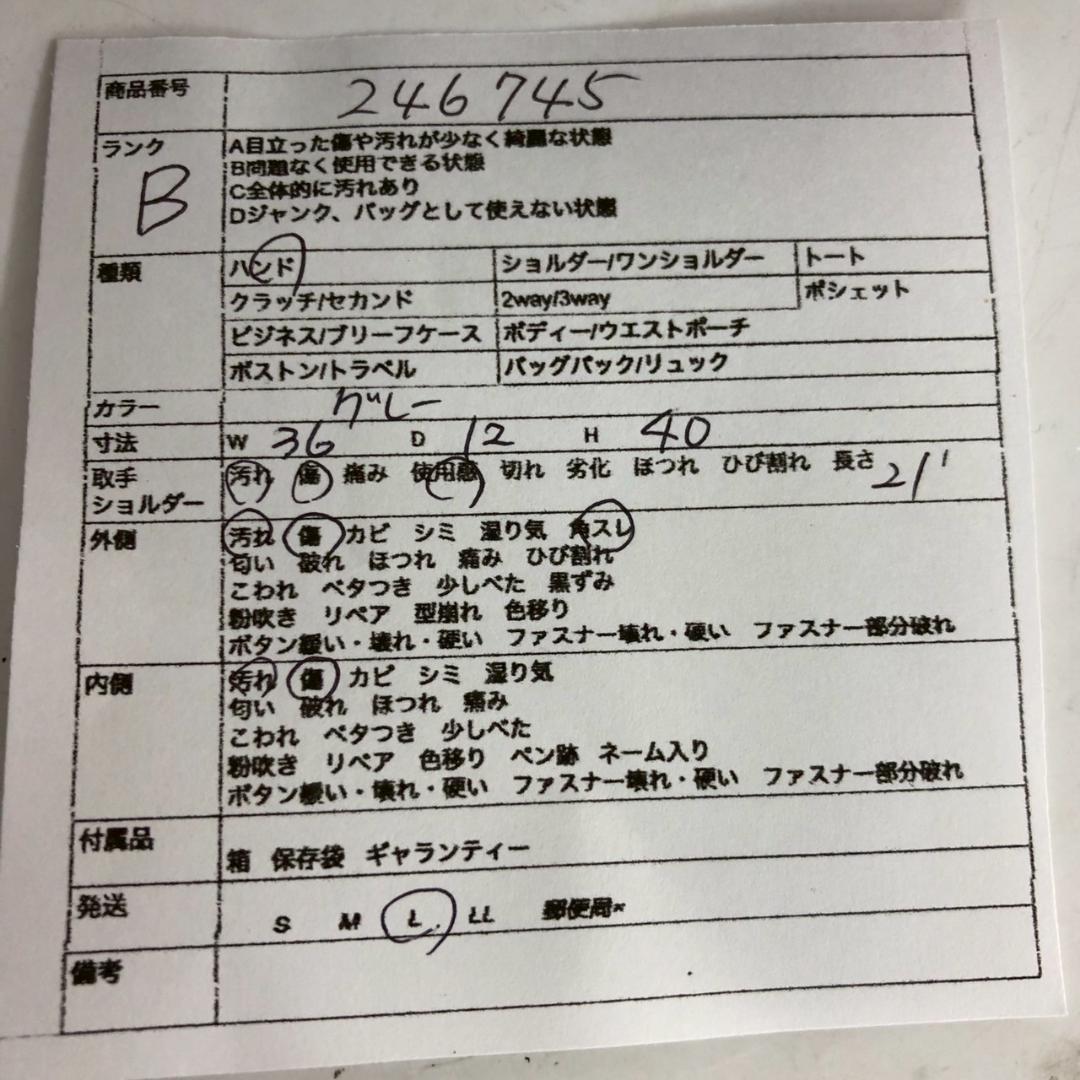 商品番号 246745
ランク B
A目立った傷や汚れが少なく綺麗な状態
B問題なく使用できる状態
C全体的に汚れあり
Dジャンク、バッグとして使えない状態
種類 ハンド ショルダー/ワンショルダー トート
クラッチ/セカンド 2way/3way ポシェット
ビジネス/ブリーフケース ボディー/ウエストポーチ
ボストン/トラベル バッグパック/リュック
カラー グレー
寸法 W 36 D 12 H 40
取手 汚れ 傷 痛み 使用感 切れ 劣化 ほつれ ひび割れ 長さ 21
ショルダー
外側 汚れ 傷 カビ シミ 湿り気 角スレ
匂い 破れ ほつれ 痛み ひび割れ
こわれ ベタつき 少しべた 黒ずみ
粉吹き リペア 型崩れ 色移り
ボタン緩い・壊れ・硬い ファスナー壊れ・硬い ファスナー部分破れ
内側 汚れ 傷 カビ シミ 湿り気
匂い 破れ ほつれ 痛み
こわれ ベタつき 少しべた
粉吹き リペア 色移り ペン跡 ネーム入り
ボタン緩い・壊れ・硬い ファスナー壊れ・硬い ファスナー部分破れ
付属品 箱 保存袋 ギャランティー
発送 S M L LL 郵便局×
備考